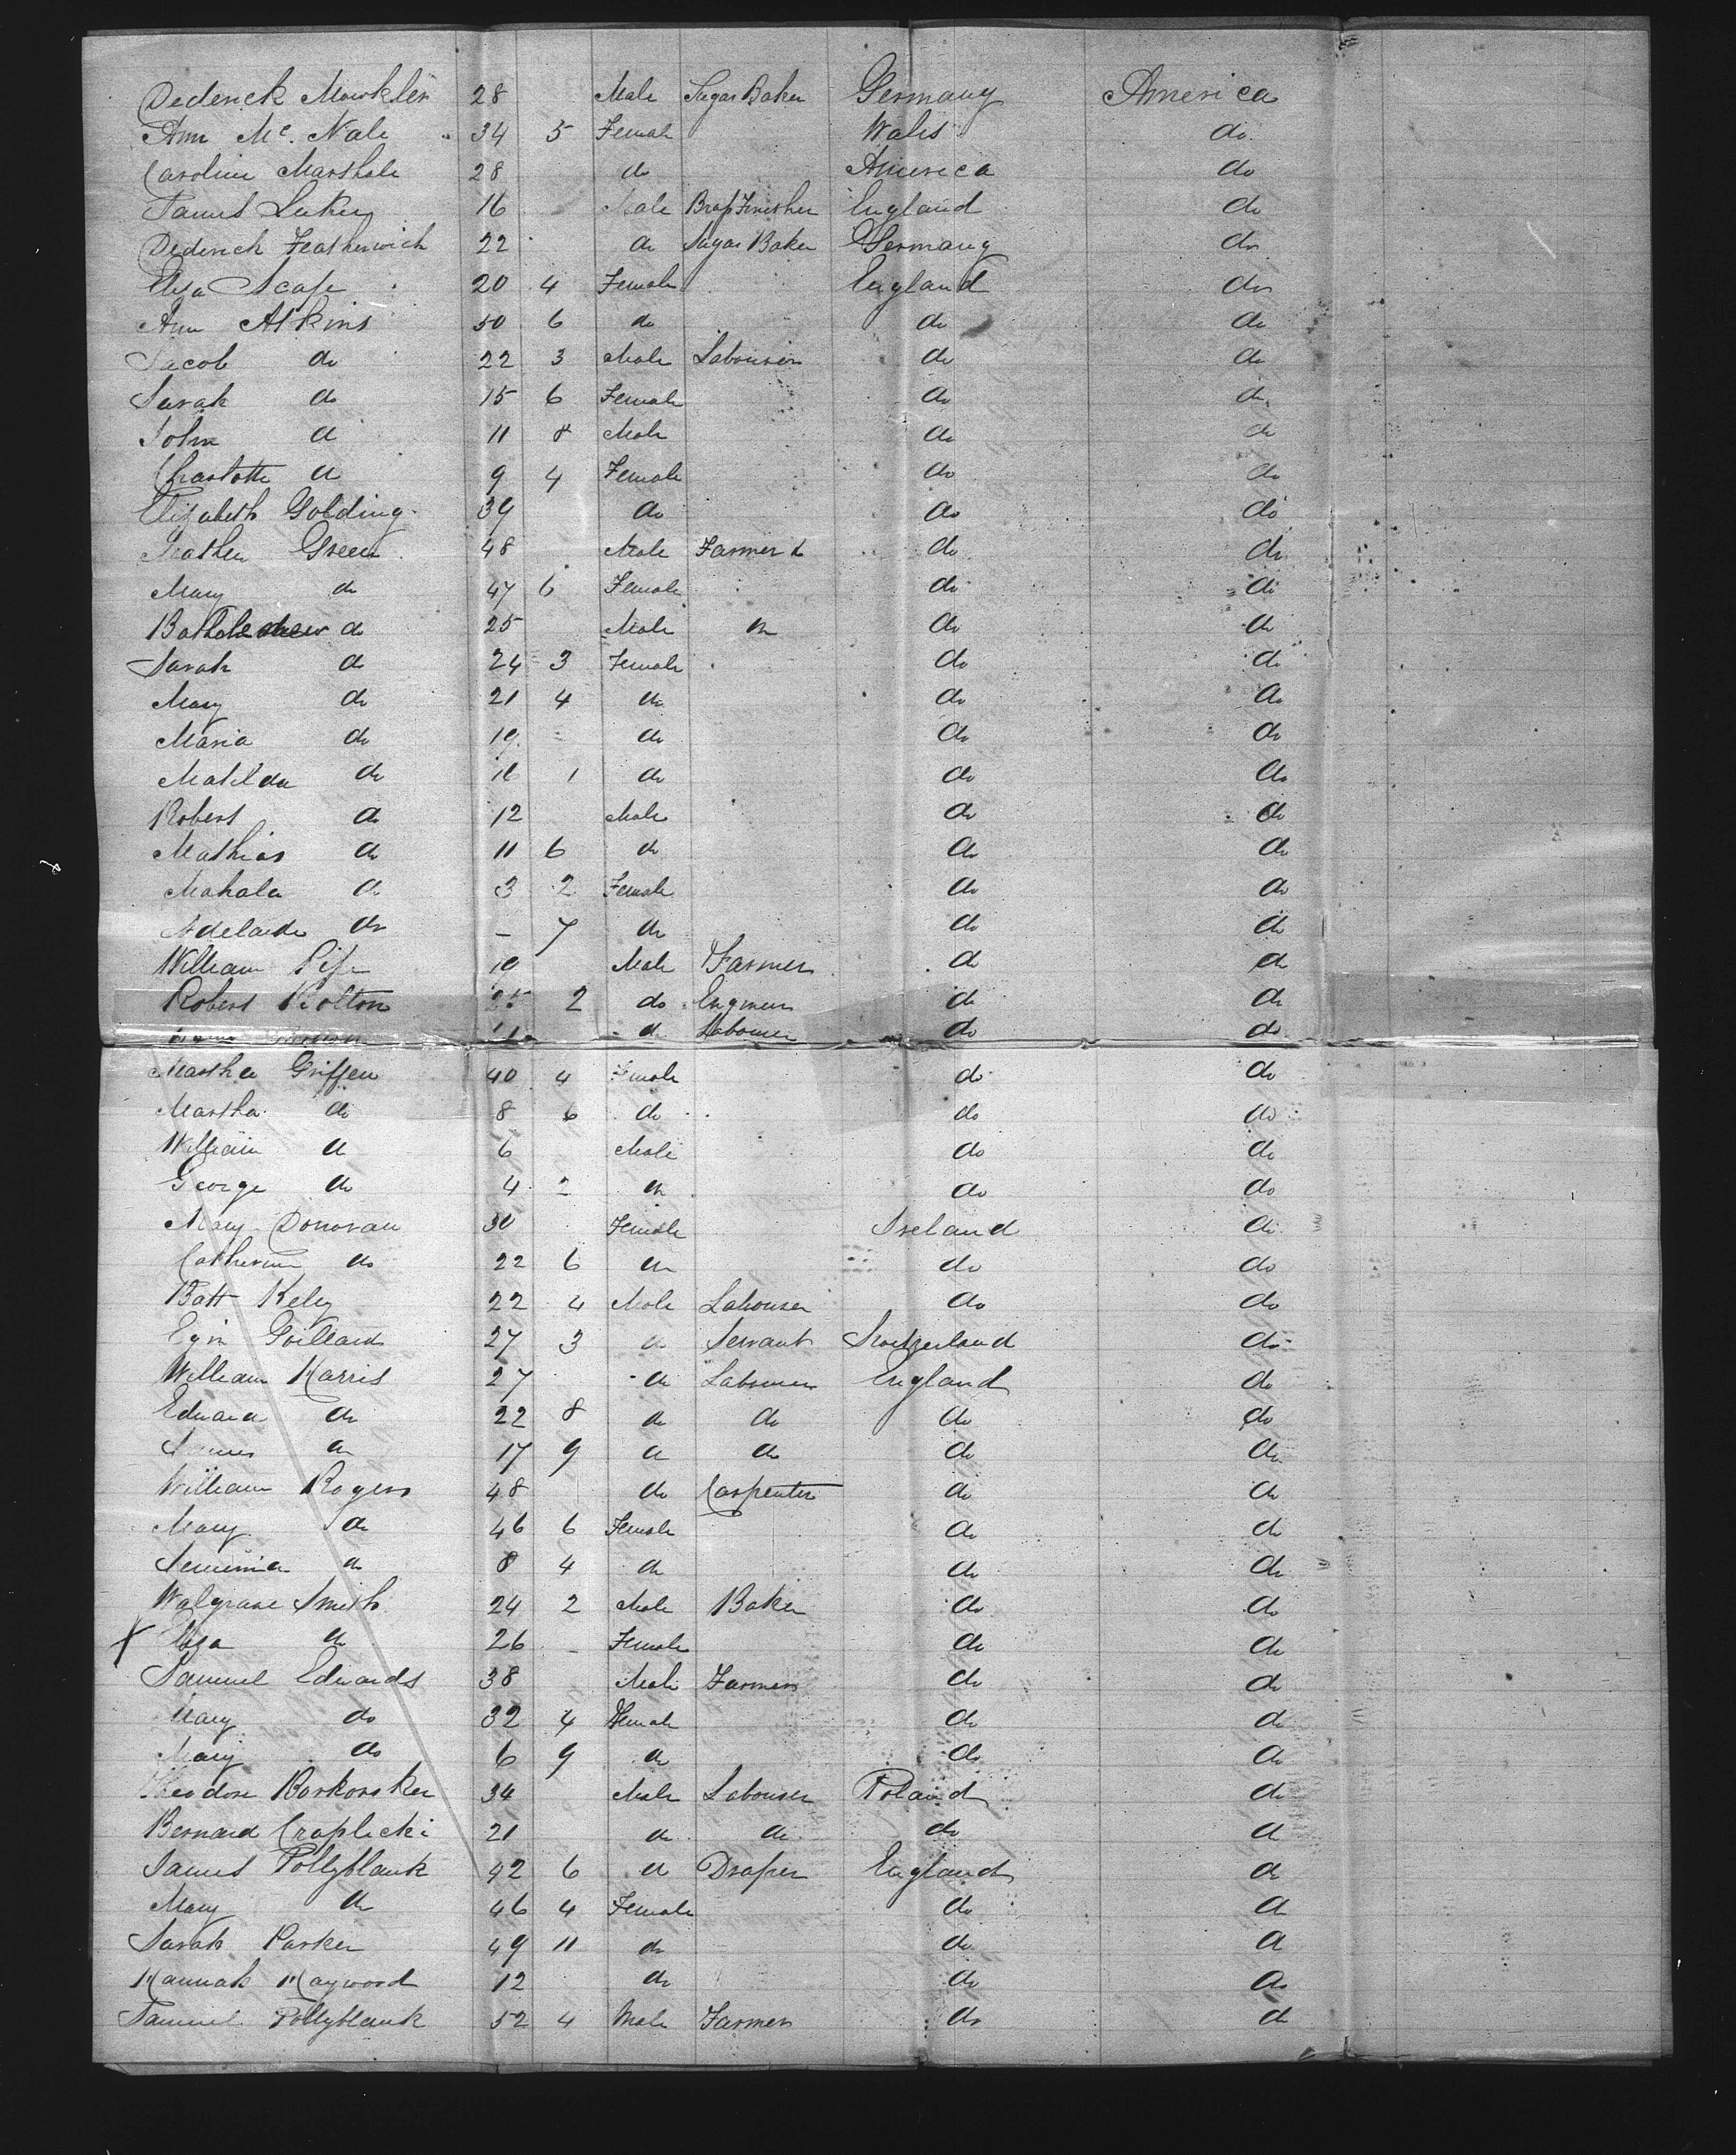 Dederick Mowkler 28 Male Sugar Baker Germany America
Ann Mc. Nale 34 5 Female Wales do
Caroline Marshale 28 do America do
James Lukey 16 Male Brass Finisher England do
Dederick Featherwich 22 do Sugar Baker Germany do
Eliza Scafe 20 4 Female England do
Ann Atkins 50 6 do do do
Jacob do 22 3 Male Labourer do do
Sarah do 15 6 Female do do
John do 11 8 Male do do
Charlotte do 9 4 Female do do
Elizabeth Golding 39 do do do
Green 48 Male Farmer do do
Mary do 47 6 Female do do
do 25 Male do do do
Sarah do 24 3 Female do do
Mary do 21 4 do do do
Maria do 19 do do do
Matilda do 1 do do do
Robert do 12 Male do do
Mathias do 11 6 do do do
Mahala do 3 2 Female do do
Adelaide do - 7 do do do
William Pife Male Farmer do do
Robert Bolton 25 2 do Engineer do do
do Labourer do do
Martha Griffen 40 4 Female do do
Martha do 8 6 do do do
William do 6 Male do do
George do 4 2 do do do
Mary Donovan 30 Female Ireland do
Catherine do 22 6 do do do
Batt Kely 22 4 Male Labourer do do
Goillard 27 3 do Servant Switzerland do
William Harris 27 do Labourer England do
Edward do 22 8 do do do do
James do 17 9 do do do do
William Rogers 48 do Carpenter do do
Mary do 46 6 Female do do
Jemimia do 8 4 do do do
Walgrave Smith 24 2 Male Baker do do
X Eliza do 26 - Female do do
Samuel Edwards 38 Male Farmer do do
Mary do 32 4 Female do do
Mary do 6 9 do do do
Theodore Borkowsker 34 Male Labourer Poland do
Bernard Craplicki 21 do do do do
James Pollyblank 42 6 do Draper England do
Mary do 46 4 Female do do
Sarah Parker 49 11 do do do
Hannah Haywood 12 do do do
Samuel Pollyblank 52 4 Male Farmer do do